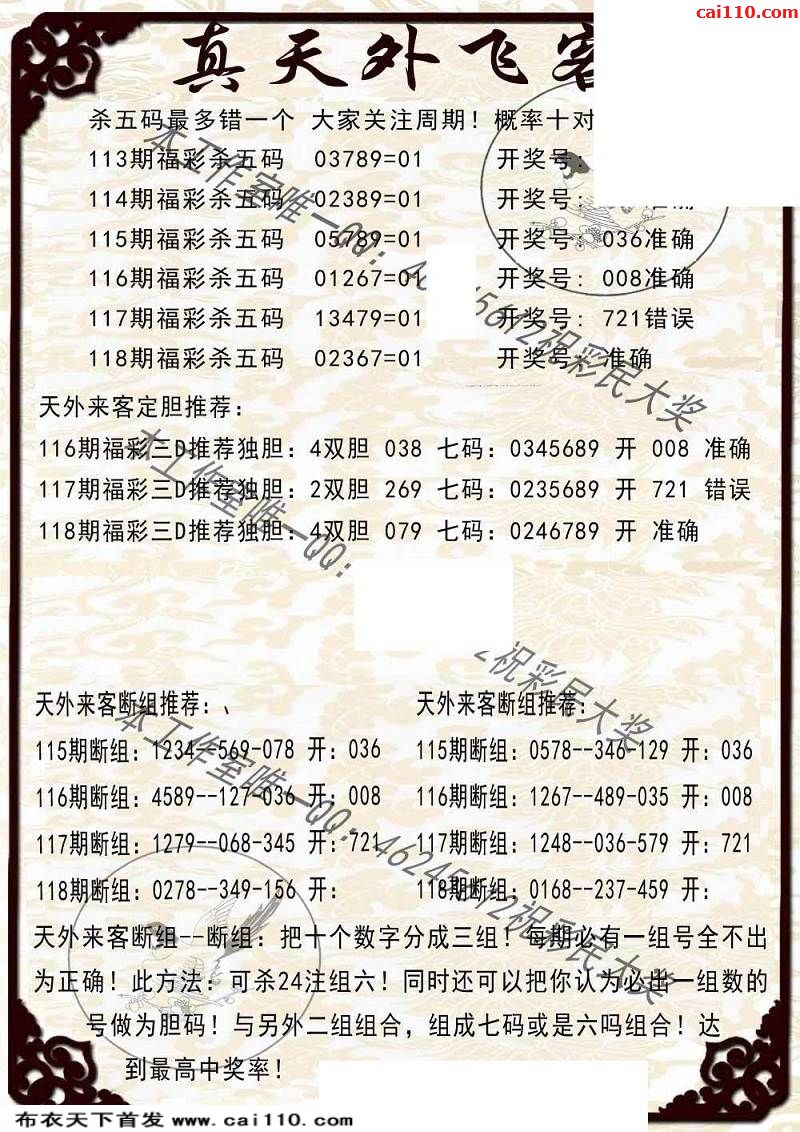 cai110.com
真天外飞客
杀五码最多错一个 大家关注周期！概率十对
113期福彩杀五码 03789=01 开奖号:
114期福彩杀五码 02389=01 开奖号: 准确
115期福彩杀五码 05789=01 开奖号: 036准确
116期福彩杀五码 01267=01 开奖号: 008准确
117期福彩杀五码 13479=01 开奖号: 721错误
118期福彩杀五码 02367=01 开奖号: 准确
天外来客定胆推荐:
116期福彩三D推荐独胆: 4双胆 038 七码: 0345689 开 008 准确
117期福彩三D推荐独胆: 2双胆 269 七码: 0235689 开 721 错误
118期福彩三D推荐独胆: 4双胆 079 七码: 0246789 开 准确
天外来客断组推荐:、 天外来客断组推荐:
115期断组: 1234--569-078 开: 036 115期断组: 0578--346-129 开: 036
116期断组: 4589--127-036 开: 008 116期断组: 1267--489-035 开: 008
117期断组: 1279--068-345 开: 721 117期断组: 1248--036-579 开: 721
118期断组: 0278--349-156 开: 118期断组: 0168--237-459 开:
天外来客断组--断组: 把十个数字分成三组！每期必有一组号全不出
为正确！此方法: 可杀24注组六！同时还可以把你认为必出一组数的
号做为胆码！与另外二组组合，组成七码或是六吗组合！达
到最高中奖率！
本工作室唯一QQ: 46245612祝彩民大奖
布衣天下首发 www.cai110.com